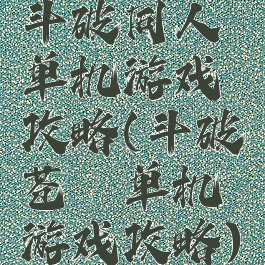 斗破同人
单机游戏
攻略(斗破
苍 单机
游戏攻略)